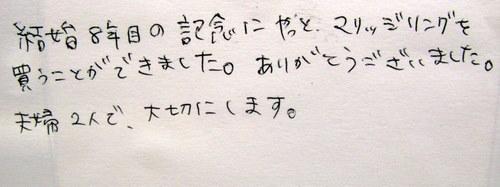 結婚8年目の記念にやっと、マリッジリングを
買うことができました。ありがとうございました。
夫婦2人で、大切にします。